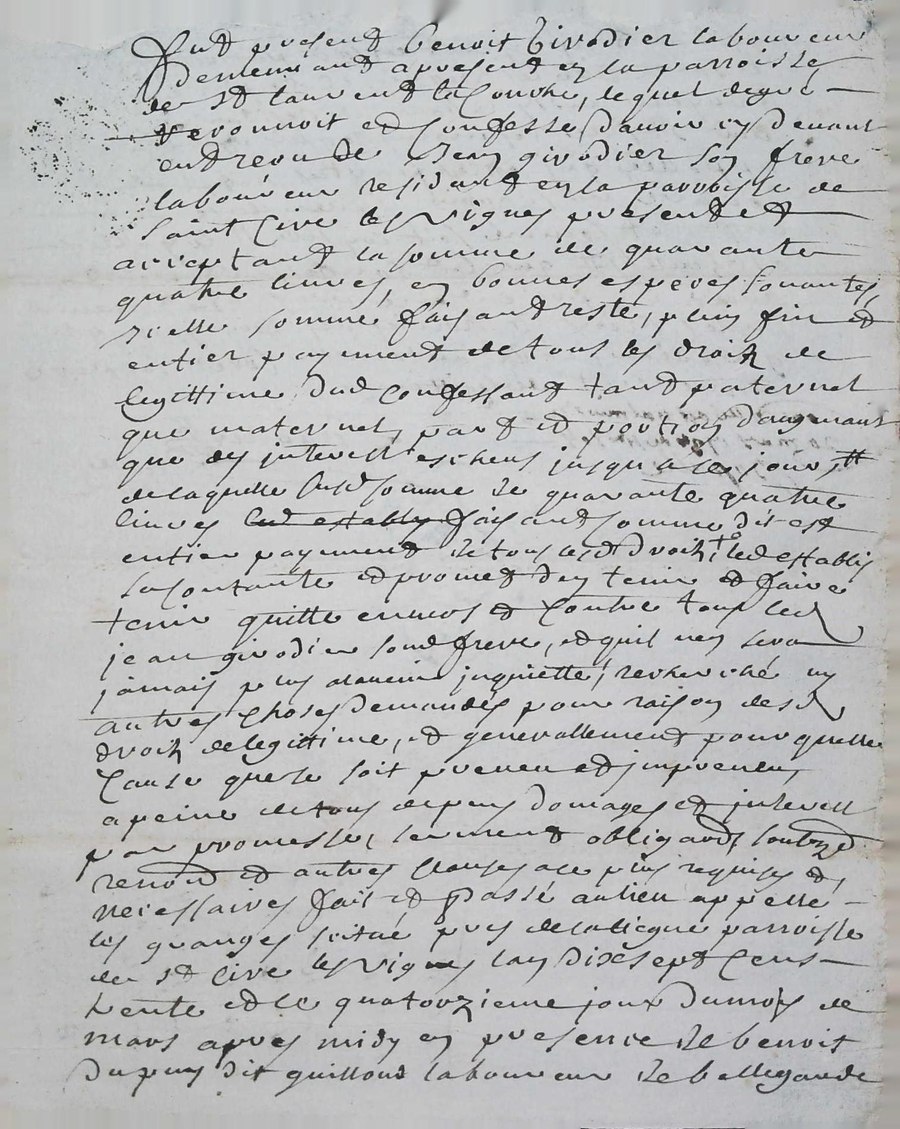 Fut present benoit Givodier laboureur
demeurant apresent en la parroisse
de St laurent la Conche, lequel de gré
reconnoit et confesse d'avoir cy devant
eut receu de Jean givodier son frere
laboureur residant en la parroisse de
saint Cire les Vignes present et
acceptant la somme de quarante
quatre livres, en bonnes especes sonantes,
icelle somme faisant reste, plein fin et
entier payement de tous les droitz de
legittime dud Confessant tant paternel
que maternel, part et portion d'augmant
que des interest escheus jusqu'a ce jour,
de laquelle susd somme de quarante quatre
livres led establi faisant somme dit est
entier payement de tous lesd droitz led establis
sa contante et promet d'en tenir et faire
tenir quitte envers et contre tous led
jean givodier sond frere, et quil n'en sera
jamais plus avancé inquietté, recherché ny
autres choses demandés pour raison desd
droitz de legittime, et generallement pour quelle
cause que se soit preveu et impreveu,
a peine de tous depens domages et interest
par promesse, serment obligand, soubzd
renond et autres clauses a ce plus requises et
necessaires fait et passé au lieu appellé
les granges scitué pres de la dicque parroisse
de St Cire les Vignes l'an dix sept Cens
trente et le quatorzieme jour du mois de
mars apres midy en presence de benoit
dupuy dit guillond laboureur de bellegarde